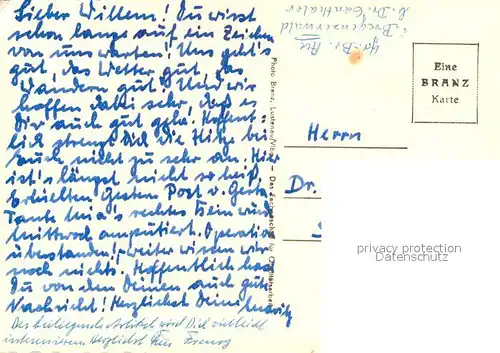 Lieber Willem! Du wirst
schon lange auf ein Zeichen
von uns warten! Uns geht's
gut, das Wetter gut, das
Wandern gut! Und wir
hoffen dabei sehr, daß es
Dir auch gut geht. Hoffent-
lich strengt Dich die Hitze bei
Euch nicht zu sehr an. Hier
ist's längst nicht so heiß.
Erhielten Gestern Post v. Gerta
Tante Mia's rechtes Bein wird
Mittwoch amputiert. Operation
überstanden! - weiter wissen wir
noch nichts. Hoffentlich hast
Du von den Deinen auch gute
Nachricht! Herzlichst Deine
Der beiliegende Artikel wird Dich vielleicht
interessieren Herzlichst
Photo Branz, Lustenau/Vlbg. —
Eine
BRANZ
Karte
i. Bregenzerwald
b. Dr.
Herrn
Dr.
privacy protection
www.oldthing.com